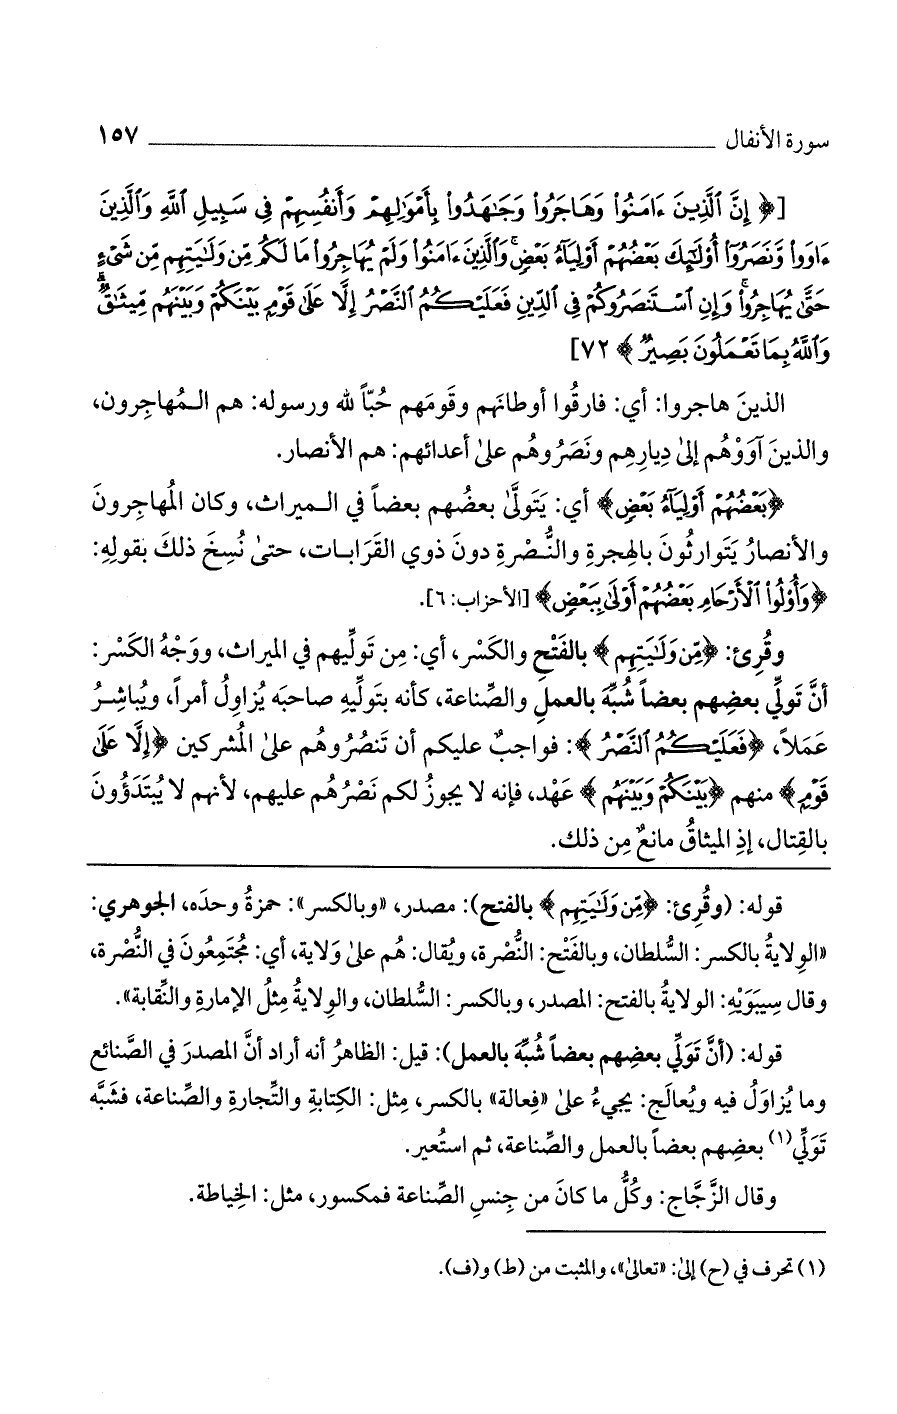 سورة الأنفال ١٥٧
[﴿ إِنَّ ٱلَّذِينَ ءَامَنُوا۟ وَهَاجَرُوا۟ وَجَـٰهَدُوا۟ بِأَمْوَٰلِهِمْ وَأَنفُسِهِمْ فِى سَبِيلِ ٱللَّهِ وَٱلَّذِينَ
ءَاوَوا۟ وَّنَصَرُوٓا۟ أُو۟لَـٰٓئِكَ بَعْضُهُمْ أَوْلِيَآءُ بَعْضٍۚ وَٱلَّذِينَ ءَامَنُوا۟ وَلَمْ يُهَاجِرُوا۟ مَا لَكُم مِّن وَلَـٰيَتِهِم مِّن شَىْءٍ
حَتَّىٰ يُهَاجِرُوا۟ۚ وَإِنِ ٱسْتَنصَرُوكُمْ فِى ٱلدِّينِ فَعَلَيْكُمُ ٱلنَّصْرُ إِلَّا عَلَىٰ قَوْمٍۭ بَيْنَكُمْ وَبَيْنَهُم مِّيثَـٰقٌۗ
وَٱللَّهُ بِمَا تَعْمَلُونَ بَصِيرٌ ﴾ ٧٢]
الذينَ هاجروا: أي: فارقُوا أوطانَهم وقَومَهم حُبّاً لله ورسوله: هم الـمُهاجِرون،
والذينَ آوَوْهُم إلىٰ دِيارِهِم ونَصَرُوهُم علىٰ أعدائهم: هم الأنصار.
﴿بَعْضُهُمْ أَوْلِيَآءُ بَعْضٍ﴾ أي: يَتَولَّىٰ بعضُهم بعضاً في الـميراث، وكان المُهاجِرونَ
والأنصارُ يَتَوارثُونَ بالهِجرةِ والنُّصْرةِ دونَ ذوي القَرَابـات، حتىٰ نُسِخَ ذلكَ بقولِهِ:
﴿وَأُو۟لُوا۟ ٱلْأَرْحَامِ بَعْضُهُمْ أَوْلَىٰ بِبَعْضٍ﴾ [الأحزاب: ٦].
وقُرِئ: ﴿مِّن وَلَـٰيَتِهِم﴾ بالفَتْحِ والكَسْر، أي: مِن تَولِّيهم في الميراث، ووَجْهُ الكَسْر:
أنَّ تَولِّي بعضِهم بعضاً شُبِّهَ بالعملِ والصِّناعة، كأنه بتَولِّيهِ صاحبَه يُزاوِلُ أمراً، ويُباشِـرُ
عَمَلاً، ﴿فَعَلَيْكُمُ ٱلنَّصْرُ ﴾: فواجبٌ عليكم أن تَنصُرُوهُم علىٰ المُشركين ﴿إِلَّا عَلَىٰ
قَوْمٍ﴾ منهم ﴿بَيْنَكُمْ وَبَيْنَهُم ﴾ عَهْد، فإنه لا يجوزُ لكم نَصْرُهُم عليهم، لأنهم لا يُبتَدَؤُونَ
بالقِتال، إذِ الميثاقُ مانعٌ مِن ذلك.
قوله: (وقُرِئ: ﴿مِّن وَلَـٰيَتِهِم﴾ بالفتح): مصدر، «وبالكسر»: حمزةُ وحدَه، الجوهري:
«الوِلايةُ بالكسر: السُّلطان، وبالفَتْح: النُّصْرة، ويُقال: هُم علىٰ وَلاية، أي: مُجتَمِعُونَ في النُّصْرة،
وقال سِيبَوَيْهِ: الولايةُ بالفتح: المصدر، وبالكسر: السُّلطان، والوِلايةُ مِثلُ الإمارةِ والنِّقابة».
قوله: (أنَّ تَوَلِّي بعضِهم بعضاً شُبِّهَ بالعمل): قيل: الظاهرُ أنه أراد أنَّ المصدرَ في الصَّنائع
وما يُزاوَلُ فيه ويُعالَج: يجيءُ علىٰ «فِعالة» بالكسر، مِثل: الكِتابةِ والتِّجارةِ والصِّناعة، فشَبَّه
تَوَلِّي(١) بعضِهم بعضاً بالعمل والصِّناعة، ثم استُعير.
وقال الزَّجَّاج: وكُلُّ ما كانَ من جِنسِ الصِّناعة فمكسور، مثل: الخِياطة.
(١) تحرف في (ح) إلىٰ: «تعالىٰ»، والمثبت من (ط) و(ف).